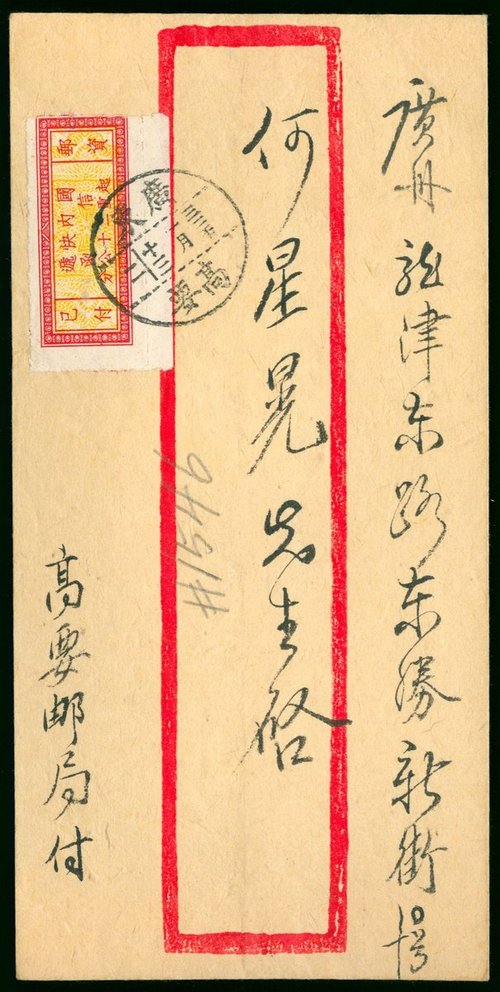 廣州龍津东路东勝新街
何星晃先生啓
高要邮局付
郵資
國內快遞
信函
已付
廣東
高要
#1546